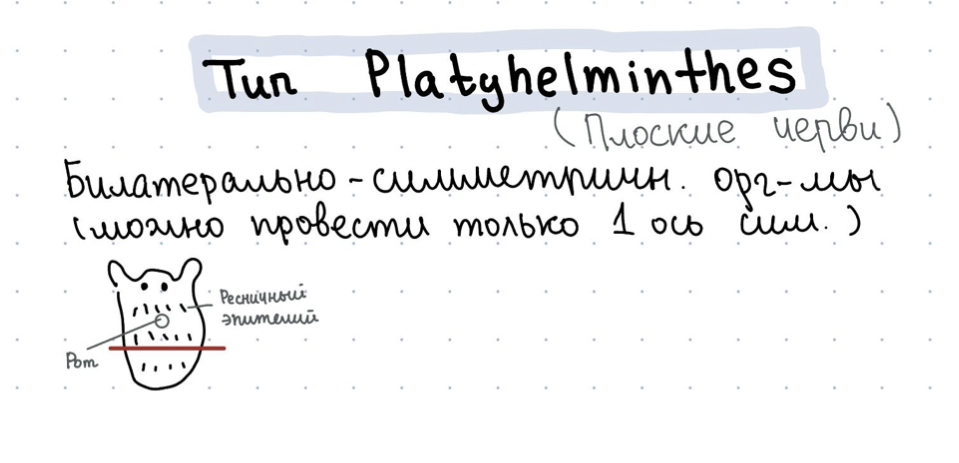 Тип Platyhelminthes
(Плоские черви)
Билатерально-симметричн. орг-мы
(можно провести только 1 ось сим.)
Ресничный
эпителий
Рот